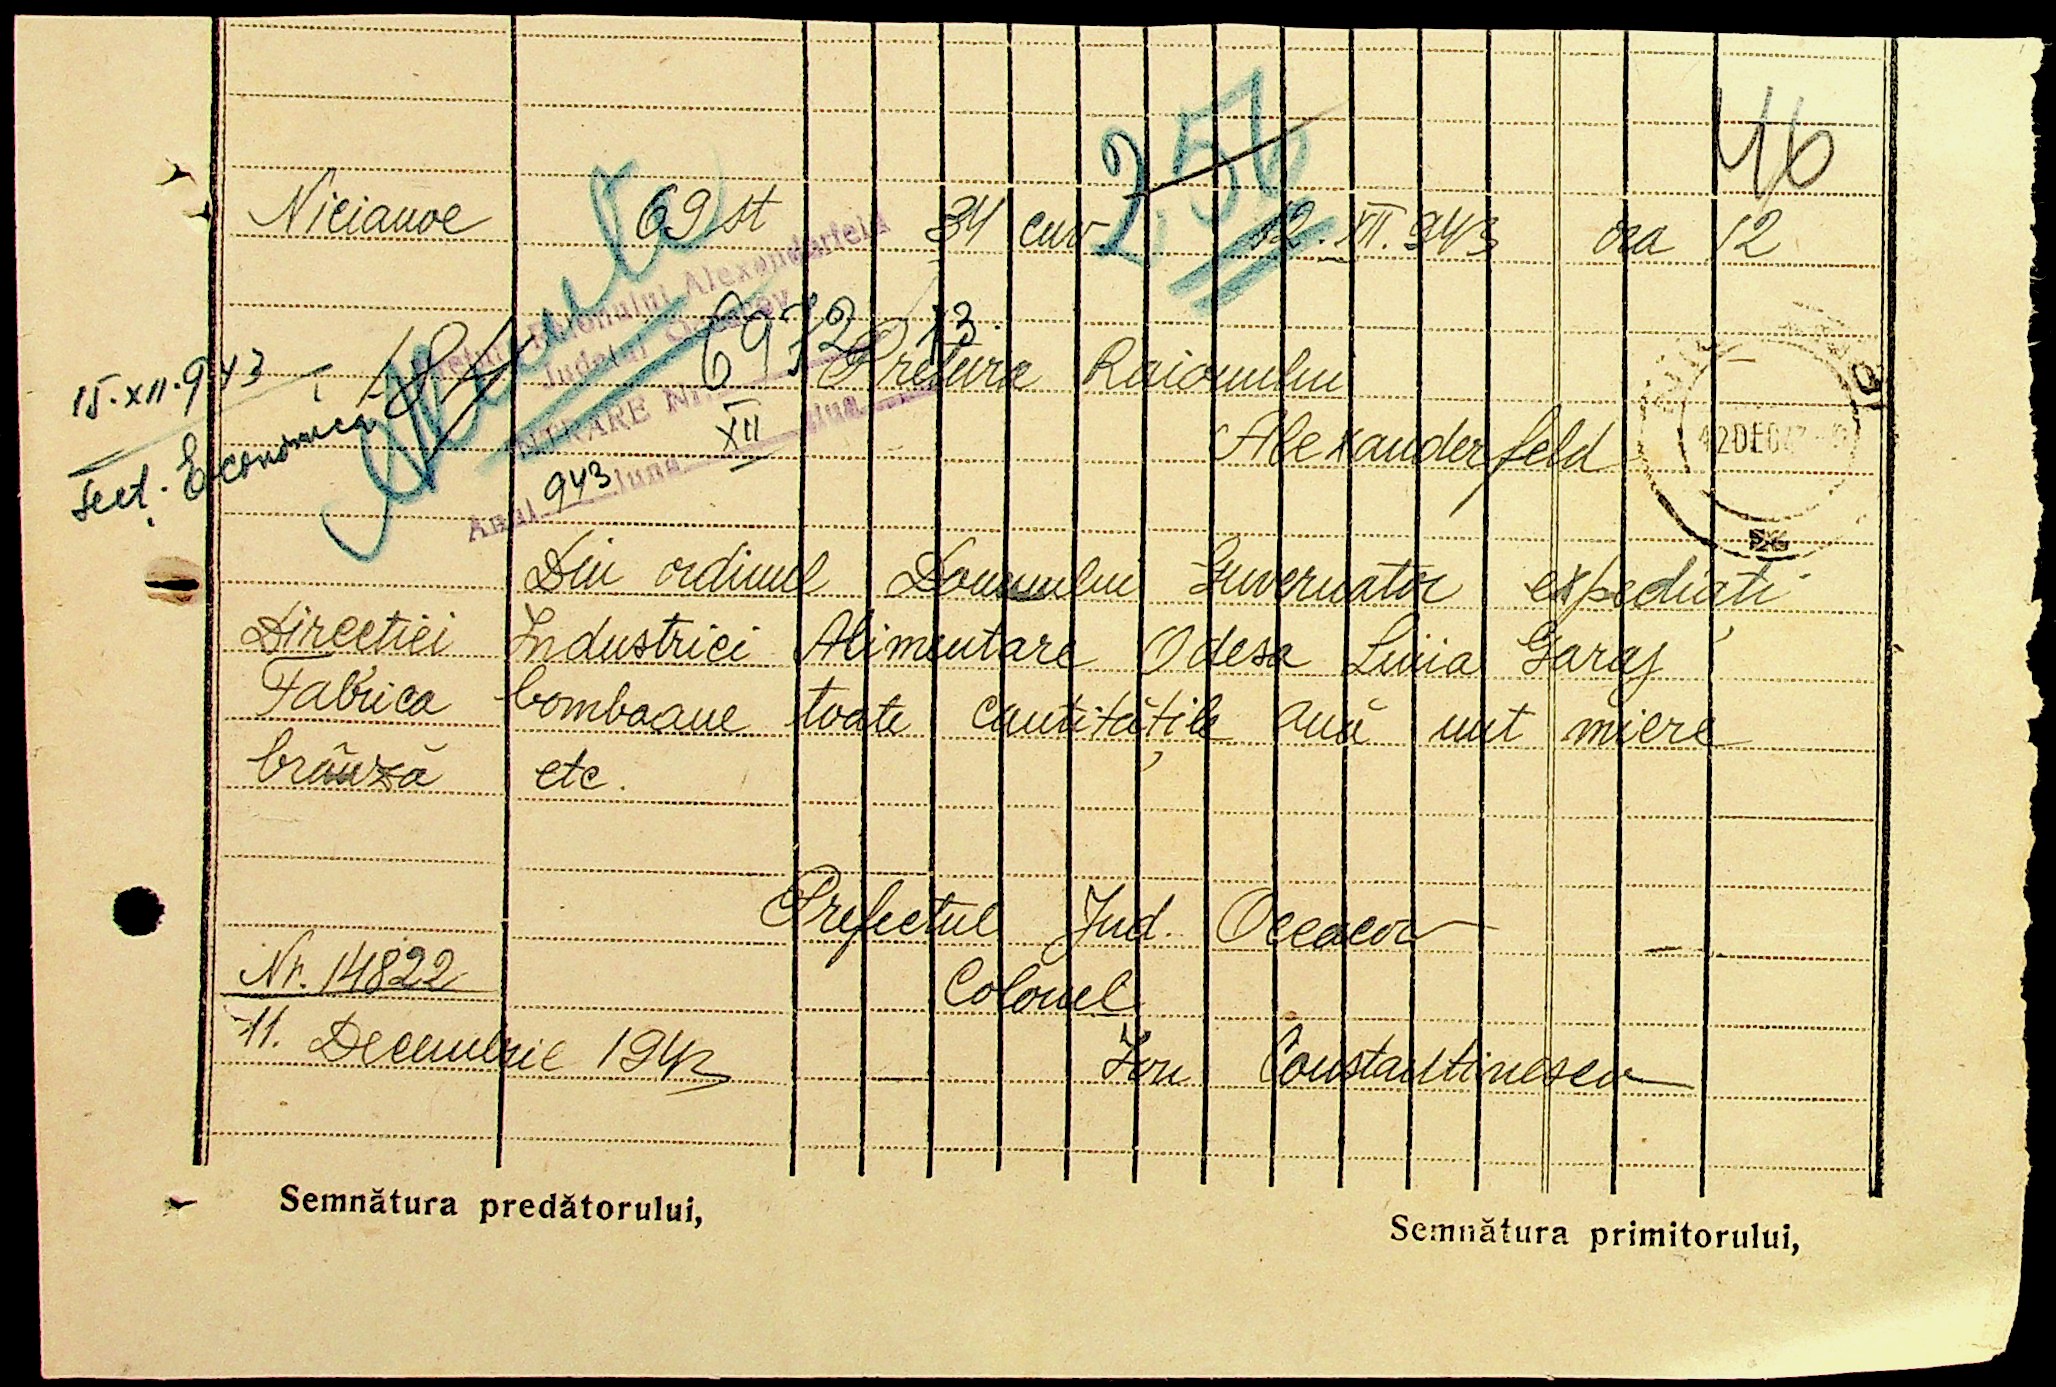 46
2,56
Niciauoe 69 st 34 cuv 12.XII.943 ora 12
Pretura Raionului Alexanderfeld
Judetul Oceacov
INTRARE Nr. 6972 13.
Anul 943 luna XII ziua
15.XII.943
Sect. Economica
Pretura Raionului
Alexanderfeld
12DEC43
Din ordinul Domnului Guvernator expediați
Direcției Industriei Alimentare Odesa Linia Garaj
Fabrica bomboane toate cantitățile ouă unt miere
brânză etc.
Prefectul Jud. Oceacov
Nr. 14822
Colonel
11. Decembrie 1943
Ion Constantinescu
Semnătura predătorului,
Semnătura primitorului,